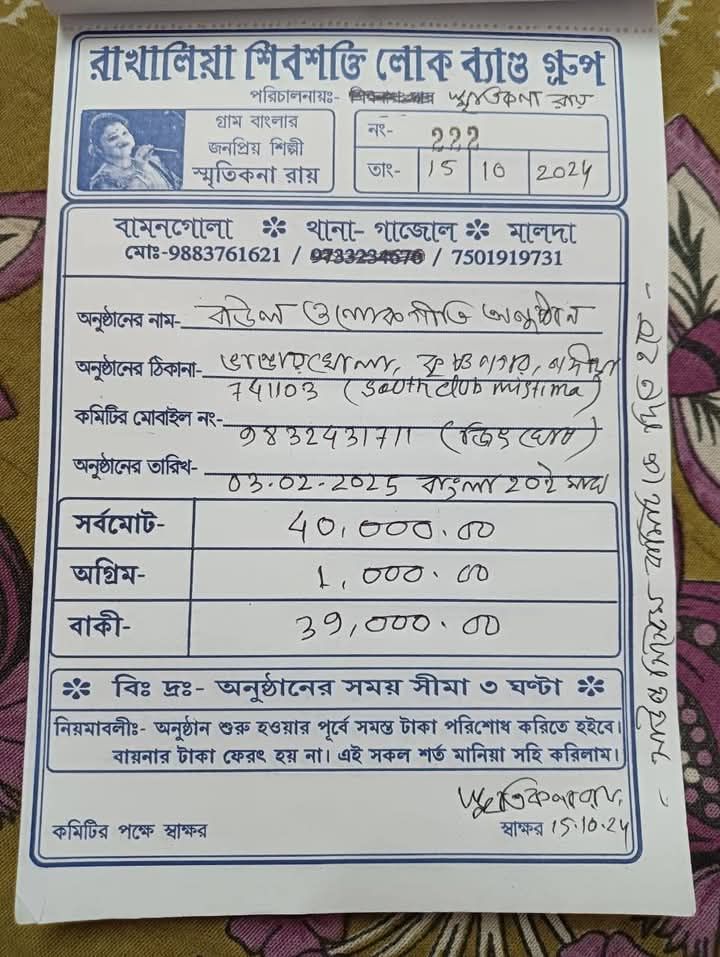 রাখালিয়া শিবশক্তি লোক ব্যাণ্ড গ্রুপ
পরিচালনায়ঃ- স্মৃতিকনা রায়
গ্রাম বাংলার
জনপ্রিয় শিল্পী
স্মৃতিকনা রায়
নং- 222
তাং- 15 10 2024
বামনগোলা ❇ থানা- গাজোল ❇ মালদা
মোঃ-9883761621 / 9733234676 / 7501919731
অনুষ্ঠানের নাম- বাউল ও লোকগীতি অনুষ্ঠান
অনুষ্ঠানের ঠিকানা- ভান্ডারখোলা, কৃষ্ণনগর, নদীয়া
741103 (South club mistima)
কমিটির মোবাইল নং- 9832431711 (জিৎ ঘোষ)
অনুষ্ঠানের তারিখ- 03-02-2025 বাংলা 20ই মাঘ
সর্বমোট- 40,000.00
অগ্রিম- 1,000.00
বাকী- 39,000.00
❇ বিঃ দ্রঃ- অনুষ্ঠানের সময় সীমা ৩ ঘণ্টা ❇
নিয়মাবলীঃ- অনুষ্ঠান শুরু হওয়ার পূর্বে সমস্ত টাকা পরিশোধ করিতে হইবে।
বায়নার টাকা ফেরৎ হয় না। এই সকল শর্ত মানিয়া সহি করিলাম।
স্মৃতিকনা রায়
কমিটির পক্ষে স্বাক্ষর
স্বাক্ষর 15.10.24
- সাউন্ড সিস্টেম কমিটি কে দিতে হবে -